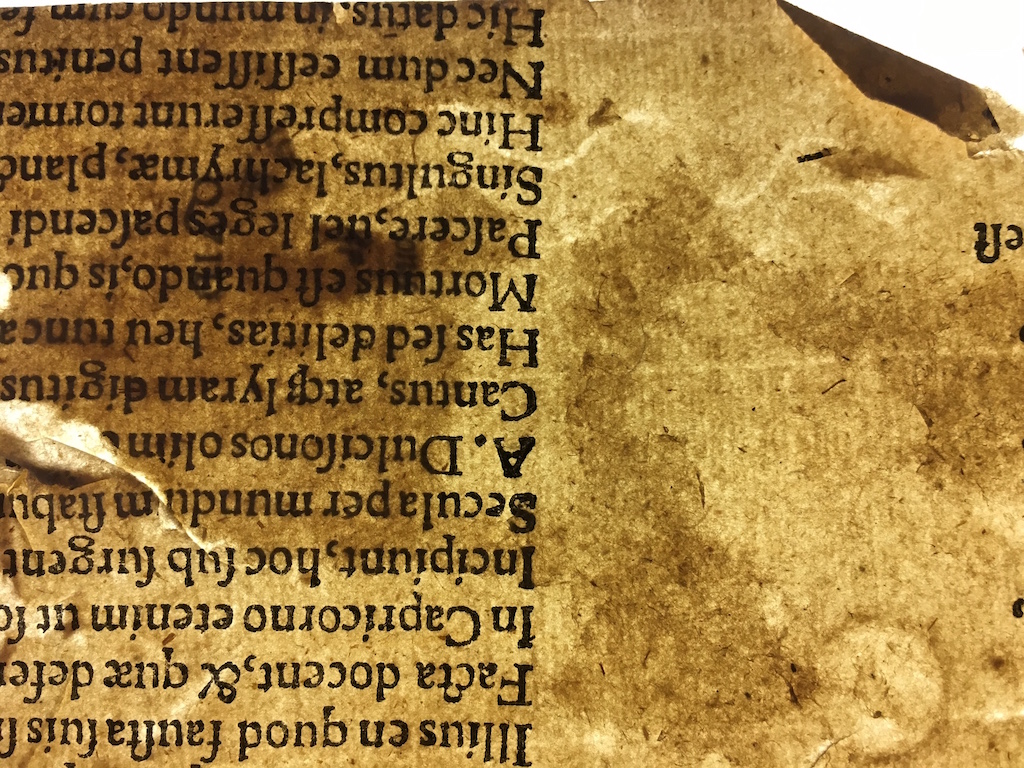 Illius en quod fauſta ſuis ſ
Facta docent, & quæ defen
In Capricorno etenim ut ſo
Incipiunt, hoc ſub ſurgent
Secula per mundum ſtabun
A. Dulciſonos olim
Cantus, atq; lyram digitus
Has ſed delitias, heu tunc a
Mortuus eſt quando, is quo
eſt
Paſcere, uel leges paſcendi
Singultus, lachrymæ, planc
Hinc compreſſerunt tormen
Necdum ceſſiſſent penitus
Hic datus, in mundo cum ſe